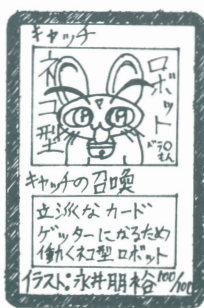 キャッチ
ネコ型
ロボット
ドラ◯もん
キャッチの召喚
立派なカード
ゲッターになるため
働くネコ型ロボット
イラスト:永井朋裕
100/100